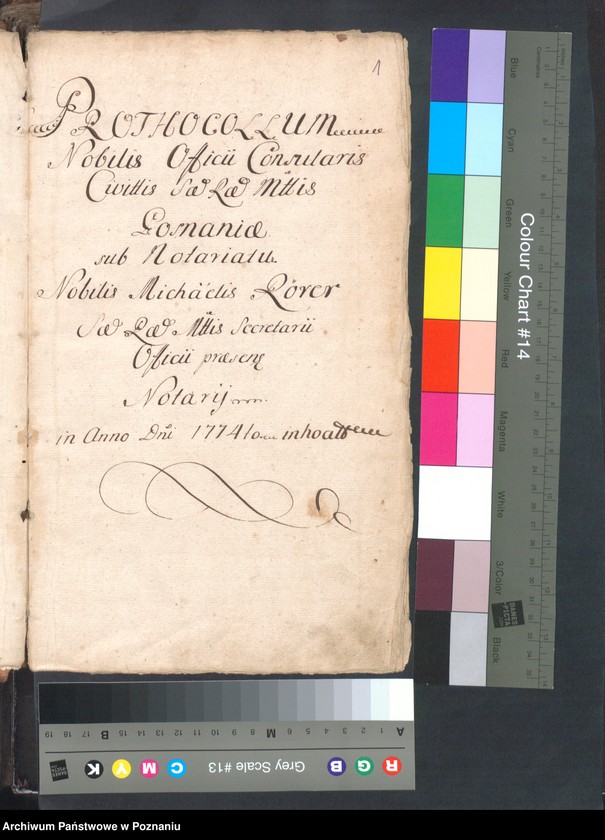 1
PROTHOCOLLUM
Nobilis Officii Consularis
Civittis Sæ Ræ Mttis
Posnaniæ
sub Notariatu
Nobilis Michaëlis Rörer
Sæ Ræ Mttis Secretarii
Officii præsens
Notarij
in Anno Dni 1774to inhoatum
Colour Chart #14
Blue
Cyan
Green
Yellow
Red
Magenta
White
3/Color
Black
Centimetres
Inches
DANES
PICTA
Grey Scale #13
R G B C M Y K
A 1 2 3 4 5 6 M 8 9 10 11 12 13 14 15 B 17 18 19
Archiwum Państwowe w Poznaniu